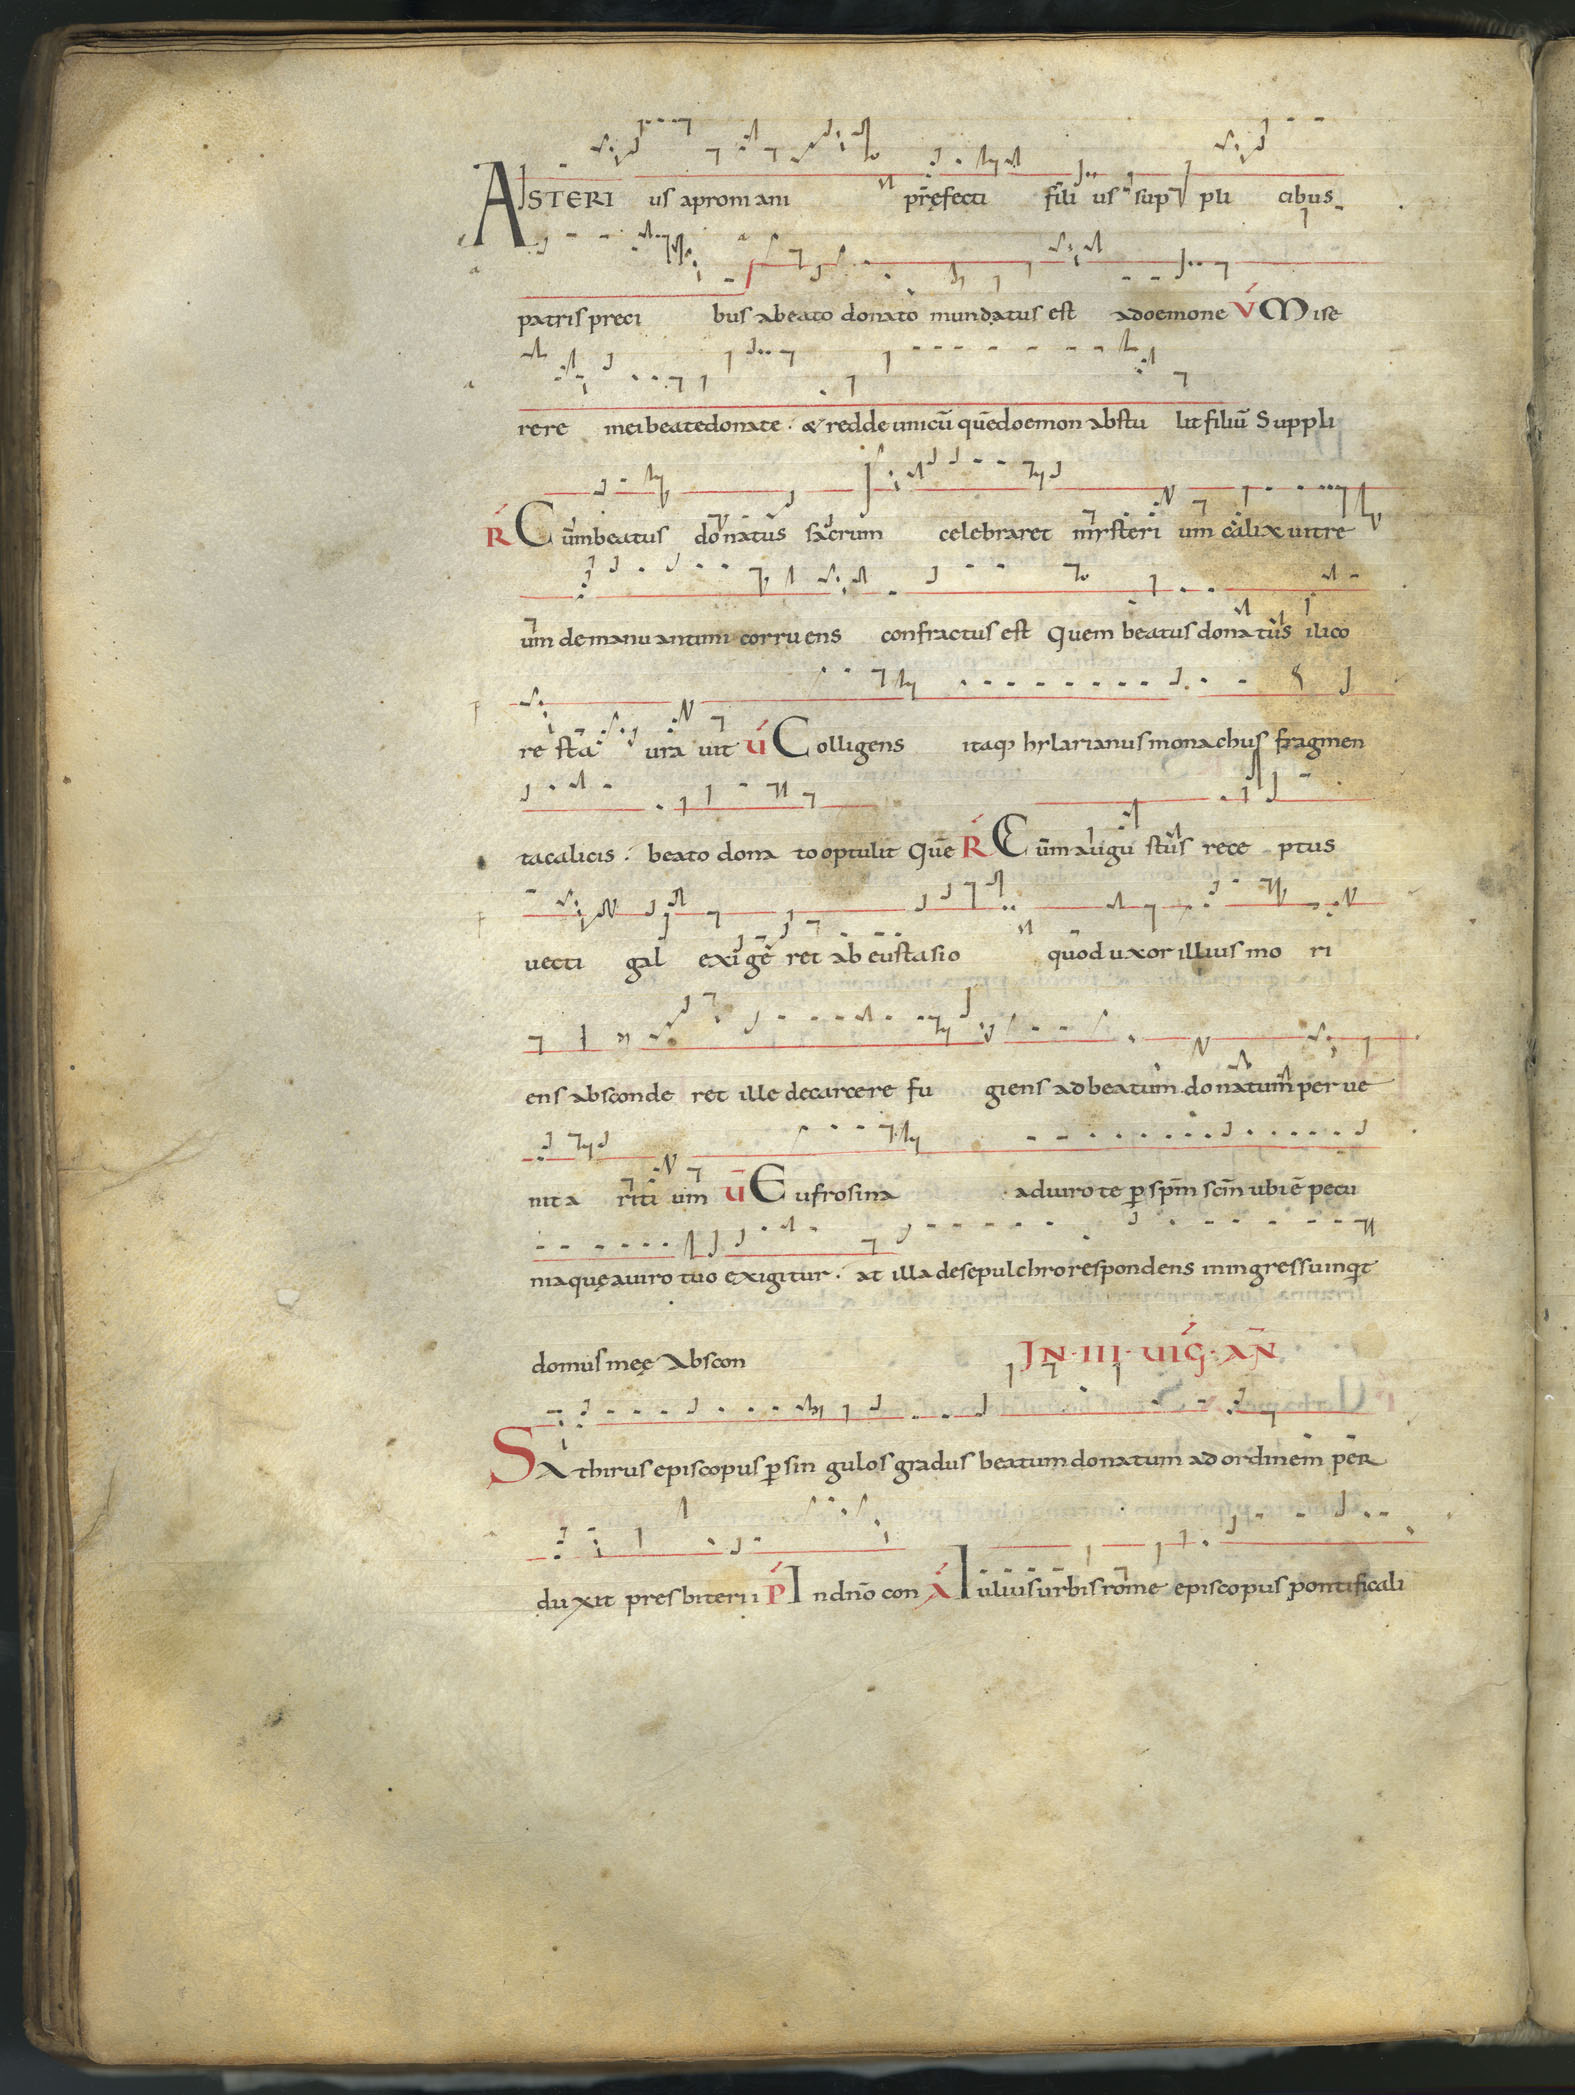 ASTERI us apromani pr̄ęfecti fili us sup pli cibus
patris preci bus abeato donato mundatus est adoemone V́ Mise
rere meibeatedonate . & redde unicū quēdoemon abstu lit filiū Suppli
Ŕ Cumbeatus donatus sacrum celebraret mysteri um calix uitre
um demanu antimi corruens confractus est Quem beatus donatus ilico
re sta ura uit V́ Colligens itaq; hylarianus monachus fragmen
tacalicis . beato dona tooptulit Quē Ŕ Cum augu stus rece ptus
uecti gal exige ret ab eustasio quod uxor illius mo ri
ens absconde ret ille decarcere fu giens adbeatum donatum per ue
nit a riti um V̄ Eufrosina adiuro te ꝑ sp̄m sc̄m ubi ē pecu
niaquę auiro tuo exigitur . at illa desepulchro respondens iningressuinq̄t
domus meę Abscon IN · III · UIǴ · AN̄
Sathirus episcopus ꝑ sin gulos gradus beatum donatum ad ordinem per
duxit presbiterii Ṕ Indn̄o con Á Iulius urbis rome episcopus pontificali